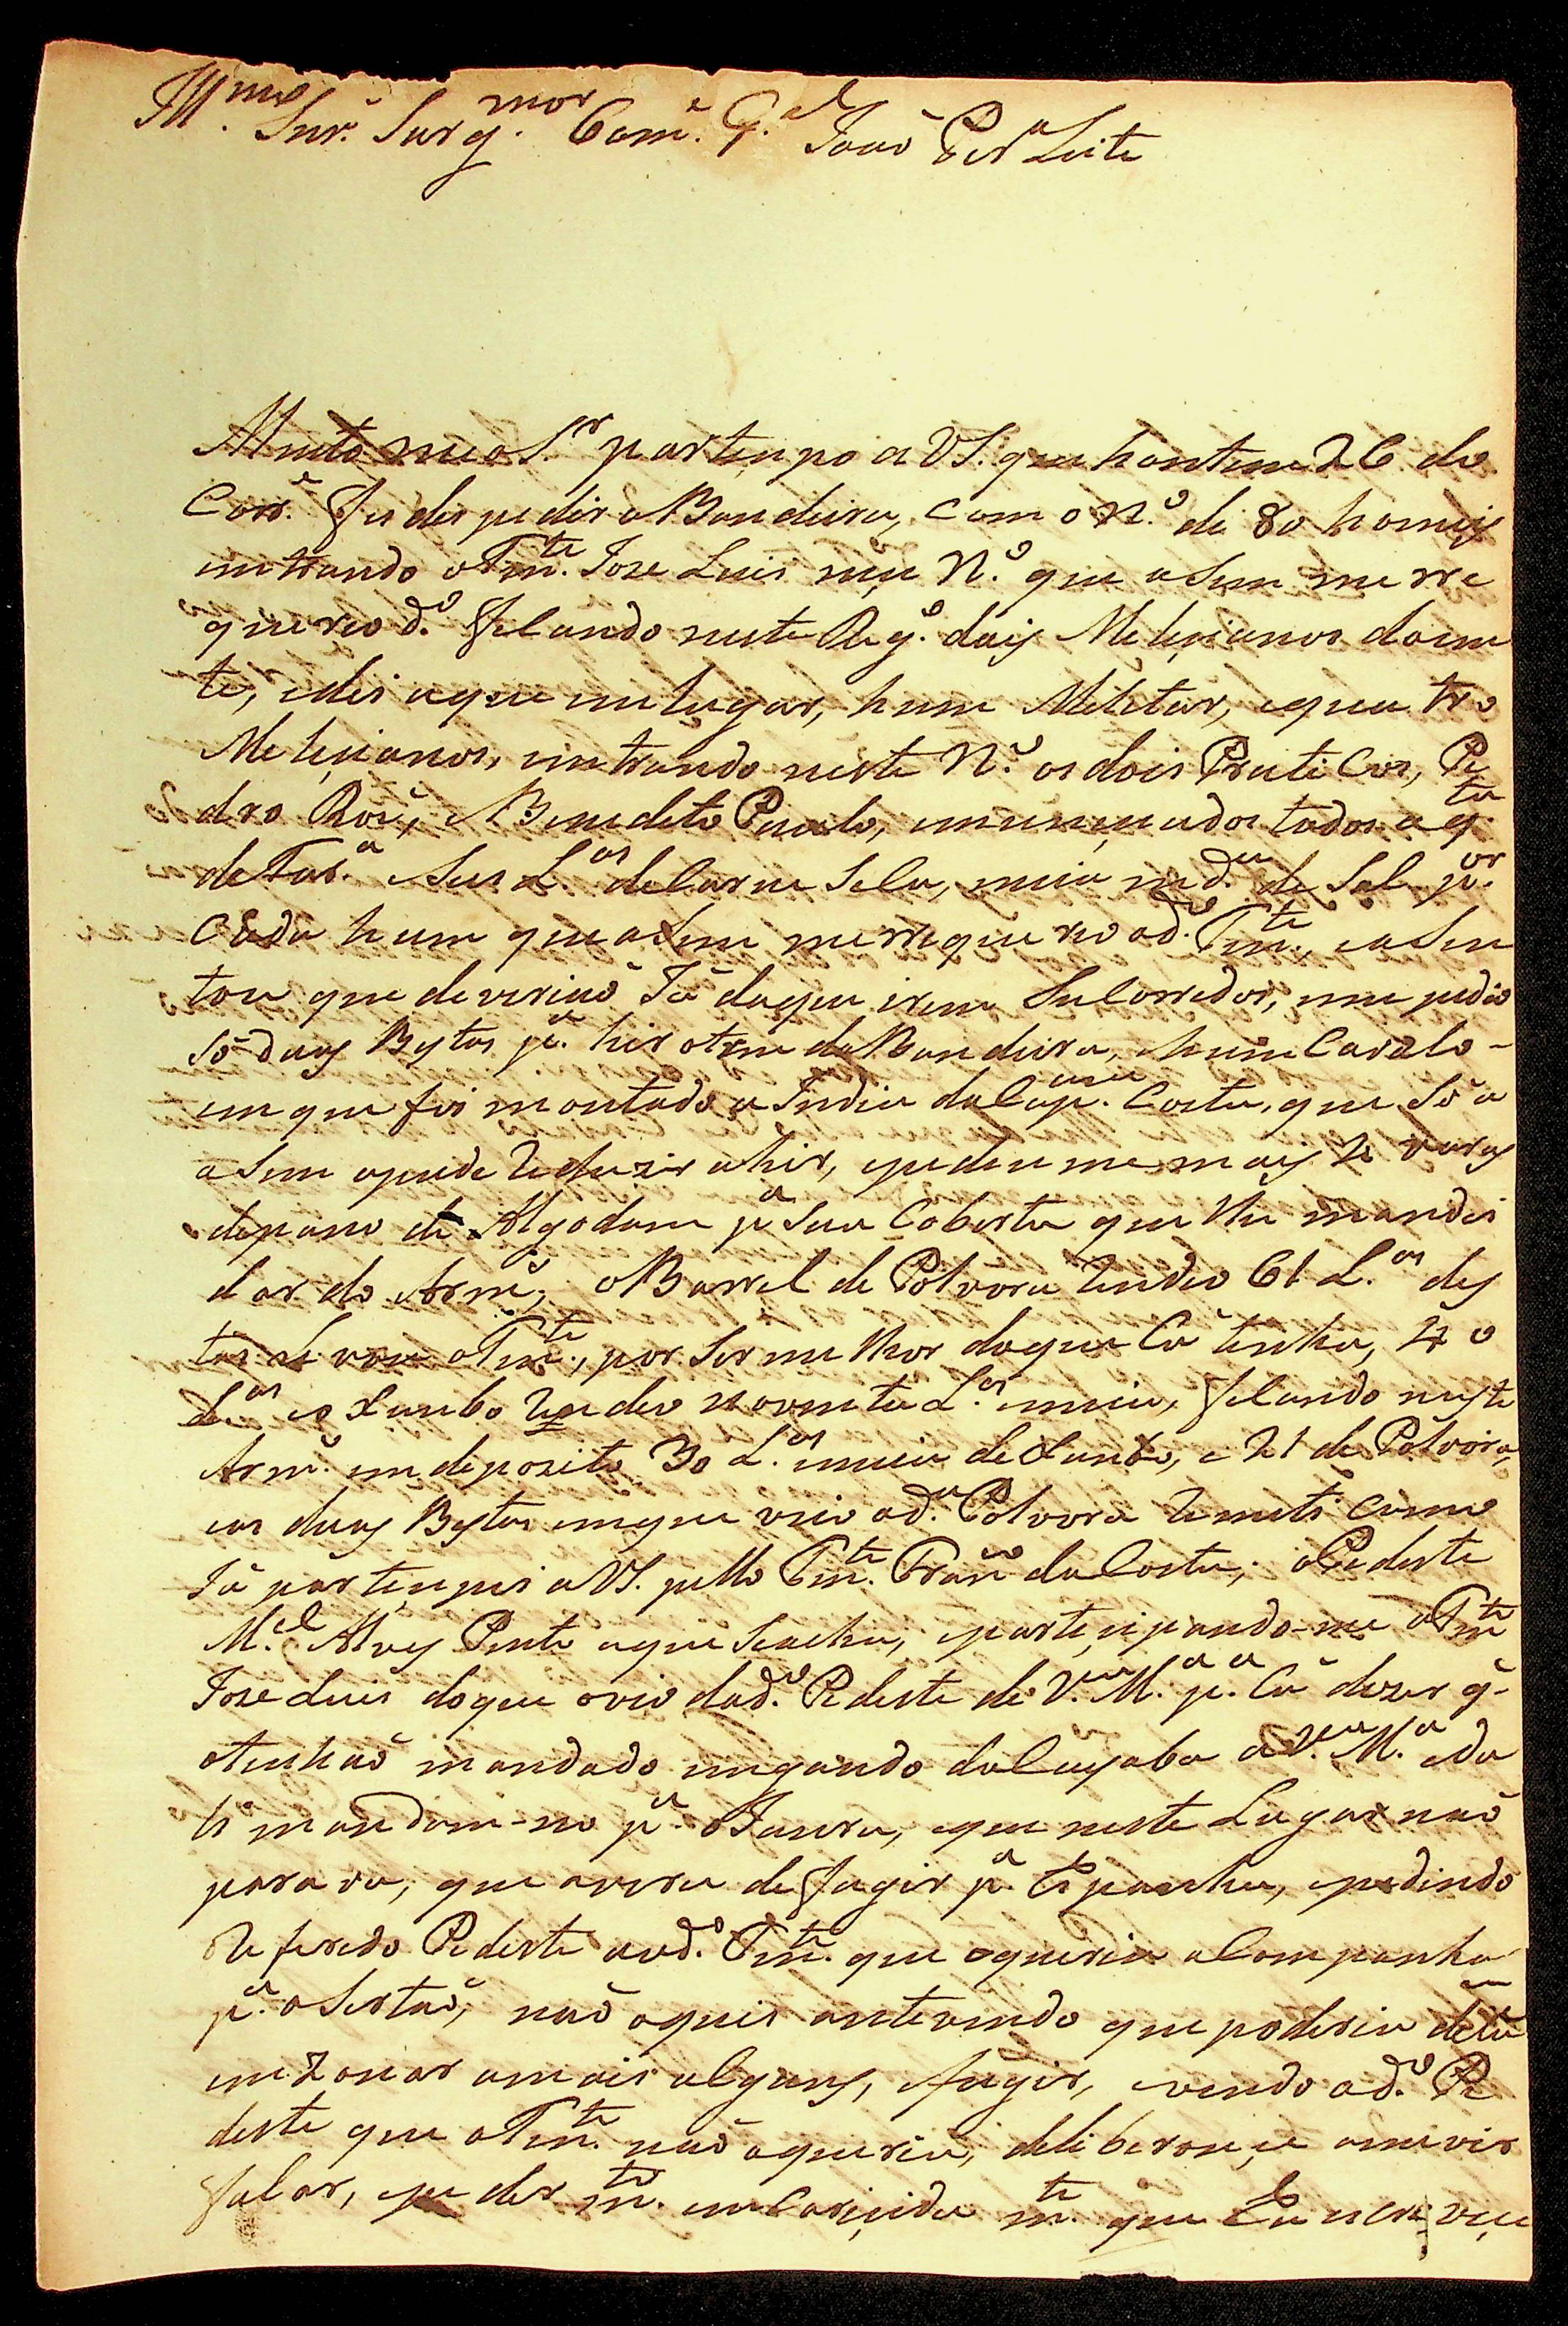 Ill.mo Snr. Sarg.mor Com.e G.al Joaõ Per.a Leite
Muito meo S.or partecipo a VS. que hontem 26 do
Corr.e fes despedir a Bandeira, com o N.o de 80 homeis
entrando o Ten.te Joze Luis neçe N.o que asim me rre
quereo o d.o ficando neste Reg.o dois Meleçianos doen
te, e dei aque em lugar, hum Meletar, e qua tro
Meleçianos, entrando neste N.o os dois Prati Cos, Pe
dro Roiz, e Benedito Paulo, emuniçiados todos a q.ta
de Far.a e Seis L.as de Carne Seca, meia med.a de Sal p.or
Cada hum que asim me rrequereo o d.o Ten.te, e asen
tou que deveriaõ Já daqui irem Sucorridos, me pedio
Só duas Bestas p.a hir o trem da Bandeira, e hum Cavalo
em que foi montada a India da Cap.am Costa, que Só a
asim apude Reduzir a hir, e pedeu me mais 2 varas
de pano de Algodam p.a Sua Coberta que lhe mandei
dar do Arm.; o Barril de Polvora Rendeo 61 L.as des
tas Levou o Ten.te, por Ser melhor do que Cá tinha, 40
L.as e o Xumbo Rendeo noventa L.as e meia, ficando neste
Arm. em deposito 30 L.as e meia de Xumbo, e 21 de Polvora,
e as duas Bestas em que veio a d.a Polvora Remeti Como
Já partecipei a VS. pello Ten.te Fran.co da Costa; o Pedeste
M.el Alves Pente aque Seacha, e partecipando-me o Ten.te
Joze Luis do que ovio do d.o Pedeste de V.a M.a p.a Cá dezer q.
o tinhaõ mandado enganado do Cuyaba a V.a M.a e da
li mandam-no p.a o Jauru, e que neste Lugar naõ
parava, que avera de fugir p.a Espanha, e pedindo
Referedo Pedeste ao d.o Ten.te que o queria acompanha
p.a o Sertaõ, naõ o quis antevendo que poderia de lá
emzonar a mais alguns, e fugir, e vendo o d.o Pe
deste que o Ten.te naõ o queria, deliberouçe a me vir
falar, e pedir m.to encareçida m.te que Eu escreveçe